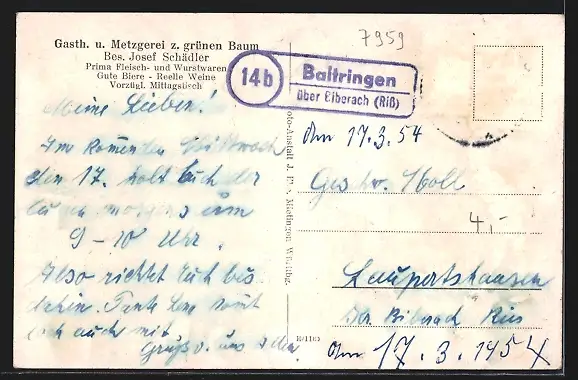 7959
Gasth. u. Metzgerei z. grünen Baum
Bes. Josef Schädler
Prima Fleisch- und Wurstwaren
Gute Biere - Reelle Weine
Vorzügl. Mittagstisch
14b
Baltringen
über Biberach (Riß)
Meine Lieben!
Im komenden Mittwoch
den 17. holt Euch der
morgens um
9-10 Uhr.
Also richtet Euch bis
dahin. Tante Lene komt
auch mit
Gruß v. uns allen
Mietingen Württbg.
Am 17.3.54
Geschw. Moll
4,-
Laupertshausen
Kr. Biberach Riss
Am 17.3.1954